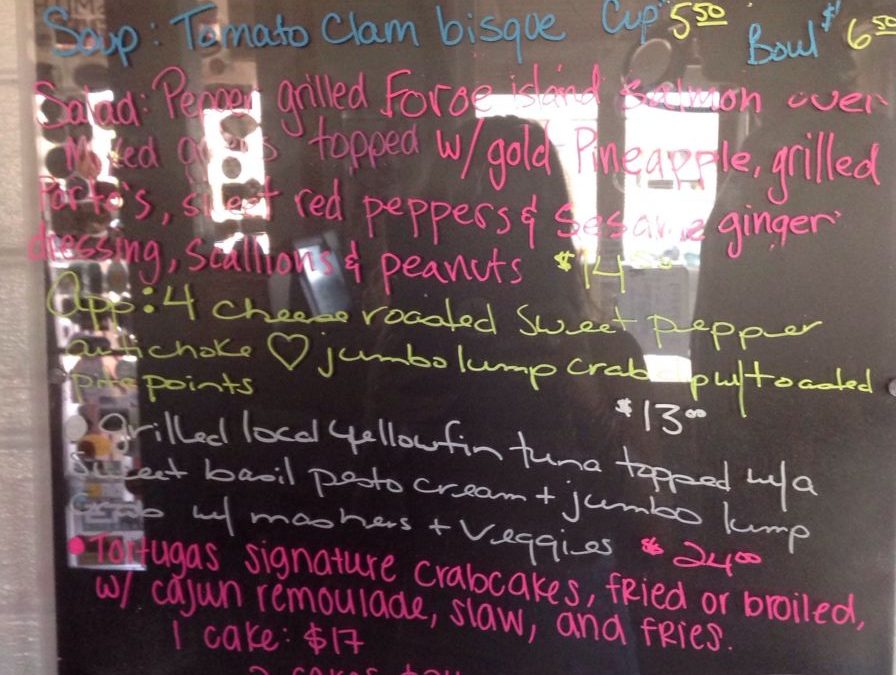 Soup: Tomato Clam bisque Cup 5.50 Bowl $6.50
Salad: Pepper grilled Faroe island Salmon over
Mixed greens topped w/ gold Pineapple, grilled
Porto's, sweet red peppers & Sesame ginger
dressing, Scallions & peanuts $14.50
App: 4 cheese roasted Sweet pepper
artichoke ♡ jumbo lump crab dip w/ toasted
pita points $13.00
grilled local yellowfin tuna topped w/ a
sweet basil pesto cream + jumbo lump
crab w/ mashers + Veggies $24.00
• Tortugas signature crabcakes, fried or broiled,
w/ cajun remoulade, slaw, and fries.
1 cake: $17
2 cakes